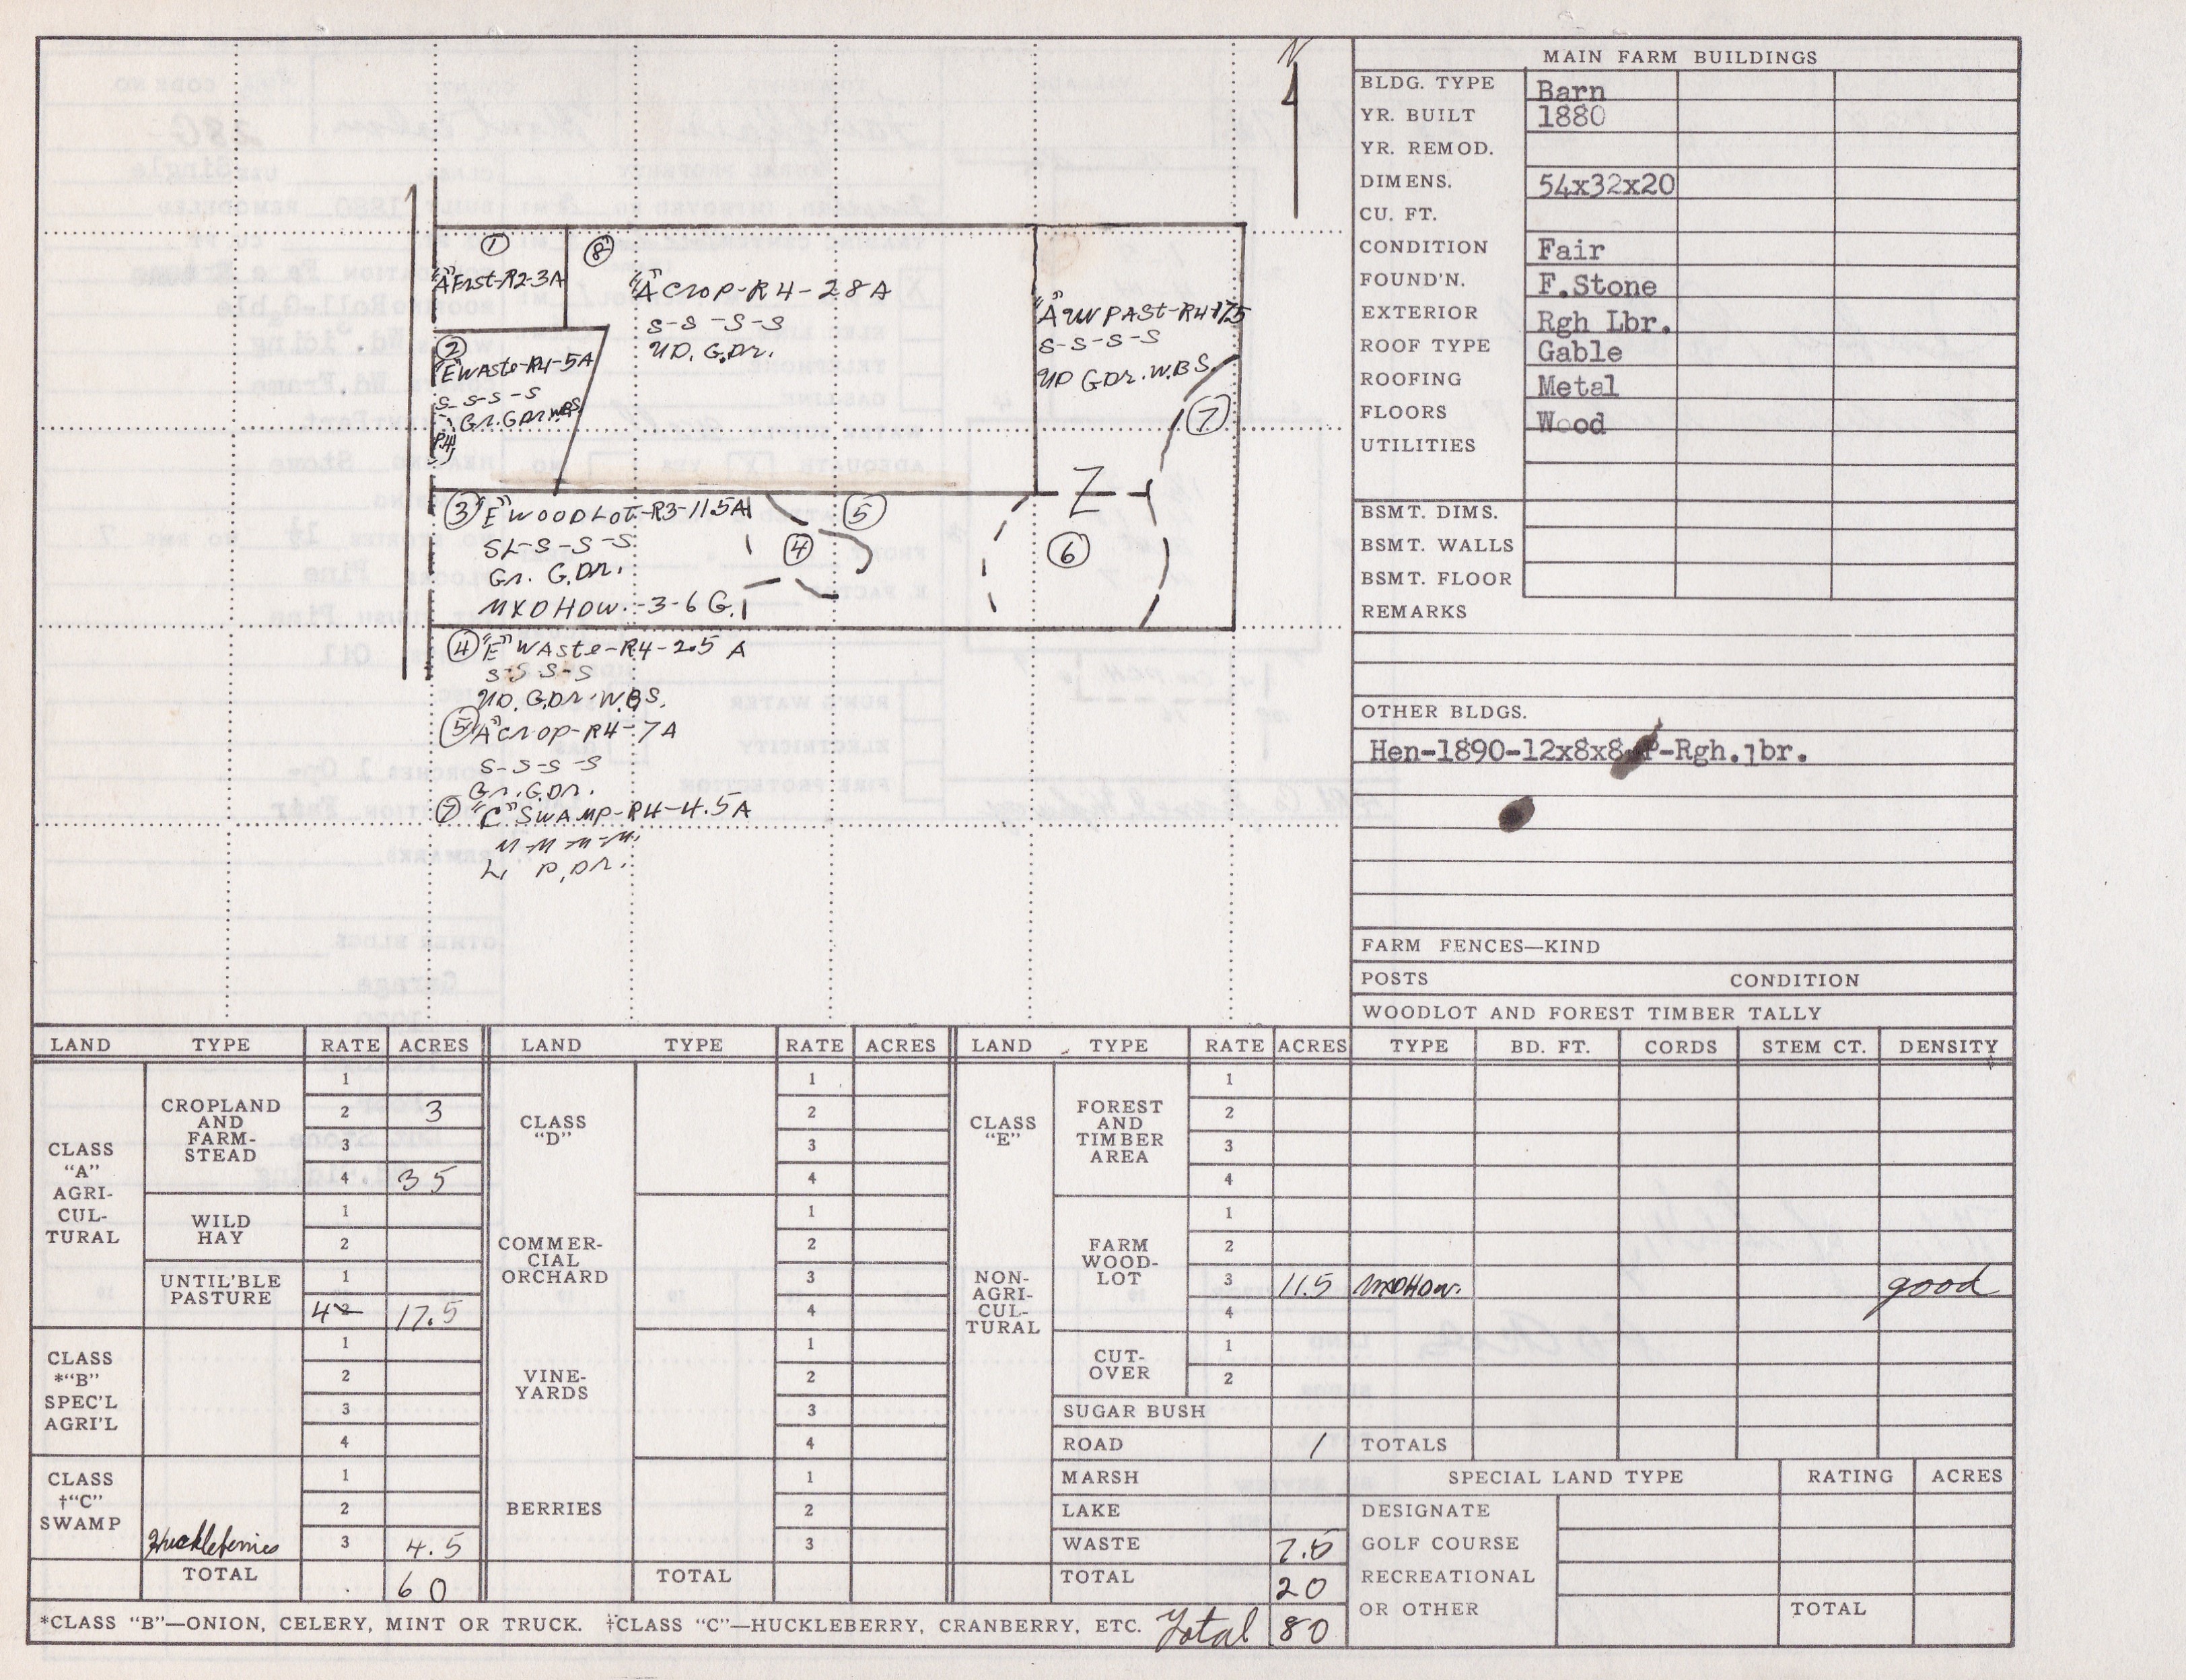 N
MAIN FARM BUILDINGS
BLDG. TYPE Barn
YR. BUILT 1880
YR. REMOD.
DIMENS. 54x32x20
CU. FT.
CONDITION Fair
FOUND'N. F.Stone
EXTERIOR Rgh Lbr.
ROOF TYPE Gable
ROOFING Metal
FLOORS Wood
UTILITIES
BSMT. DIMS.
BSMT. WALLS
BSMT. FLOOR
REMARKS
OTHER BLDGS.
Hen-1890-12x8x8 -Rgh.lbr.
FARM FENCES—KIND
POSTS CONDITION
WOODLOT AND FOREST TIMBER TALLY
1
"A" Frst-R2-3A
8
"A" Crop-R4-28A
S-S-S-S
UD. G.Dr.
"A" UN PAST-R4-17.5
S-S-S-S
UD GDr. W.B.S.
2
"E" Waste-R4-5A
S-S-S-S
Gr. G.Dr. W.B.S.
R4
7
Z
3 "E" WOODLOT-R3-11.5A
SL-S-S-S
Gr. G.Dr.
MXDHDW.-3-6 G.
4
5
6
4 "E" Waste-R4-2.5 A
S-S-S-S
UD. G.Dr. W.B.S.
5 "A" Crop-R4-7A
S-S-S-S
Gr. G.Dr.
7 "C" SWAMP-R4-4.5A
M-M-M-M.
L. P.Dr.
LAND TYPE RATE ACRES LAND TYPE RATE ACRES LAND TYPE RATE ACRES TYPE BD. FT. CORDS STEM CT. DENSITY
CLASS "A" AGRI-CUL-TURAL
CROPLAND AND FARM-STEAD
1
2 3
3
4 35
WILD HAY
1
2
UNTIL'BLE PASTURE
1
4 2 17.5
CLASS *"B" SPEC'L AGRI'L
1
2
3
4
CLASS †"C" SWAMP
1
2
Huckleberries 3 4.5
TOTAL 60
CLASS "D"
1
2
3
4
COMMER-CIAL ORCHARD
1
2
3
4
VINE-YARDS
1
2
3
4
BERRIES
1
2
3
TOTAL
CLASS "E"
NON-AGRI-CUL-TURAL
FOREST AND TIMBER AREA
1
2
3
4
FARM WOOD-LOT
1
2
3 11.5 MXDHDW. good
4
CUT-OVER
1
2
SUGAR BUSH
ROAD 1 TOTALS
MARSH
LAKE
WASTE 7.5
TOTAL 20
SPECIAL LAND TYPE RATING ACRES
DESIGNATE
GOLF COURSE
RECREATIONAL
OR OTHER TOTAL
*CLASS "B"—ONION, CELERY, MINT OR TRUCK. †CLASS "C"—HUCKLEBERRY, CRANBERRY, ETC. Total 80